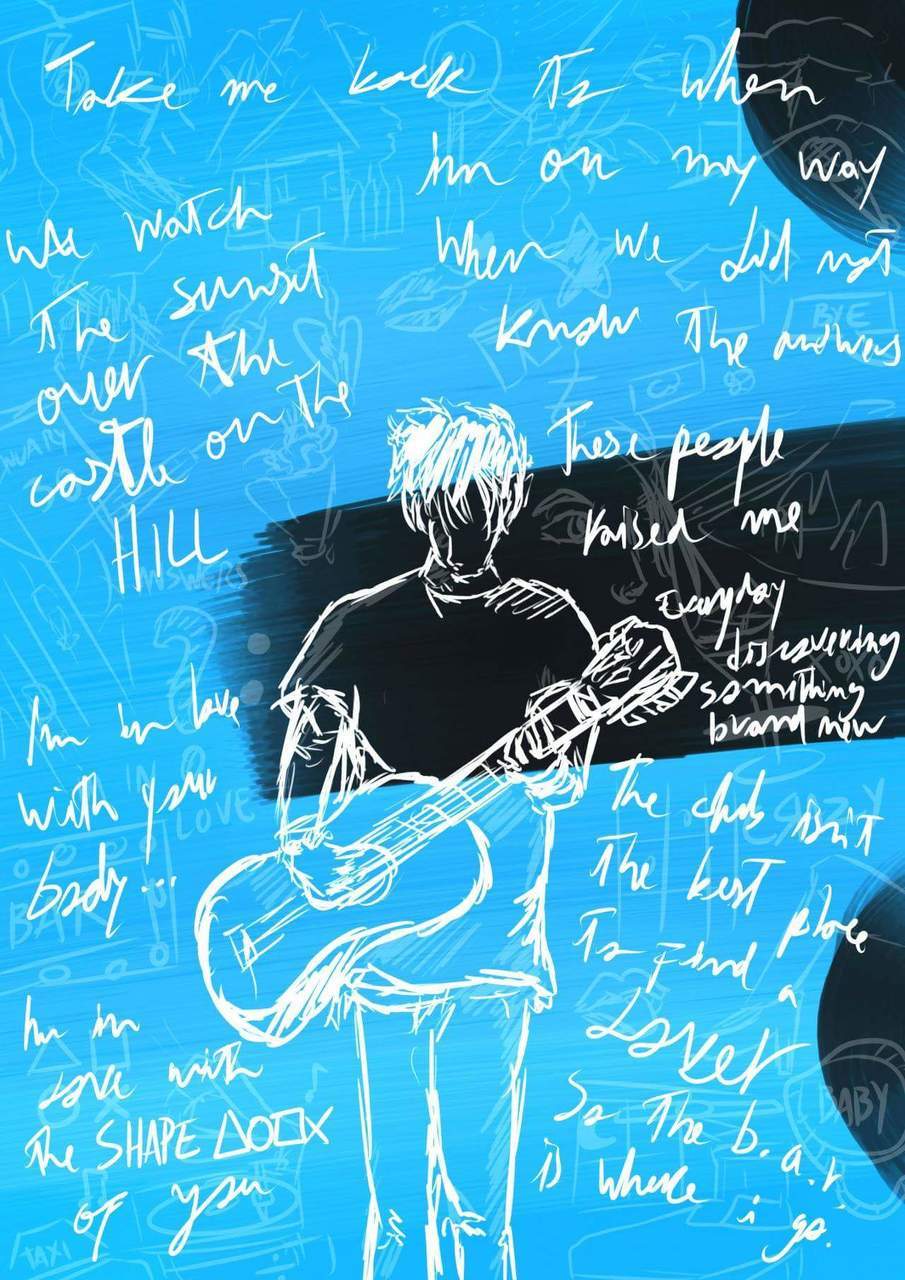 Take me back To when
i'm on my way
When we did not
know The answers
We watch
The sunset
over the
castle on the
HILL
These people
raised me
Everyday
discovering
something
brand new
I'm in love
with your
body...
I'm in
love with
the SHAPE △○□X
of you
The club isn't
The best place
To find a
Lover
So The b.a.r
is where i go.
BYE
ANSWERS
LOVE
BABY
TAXI